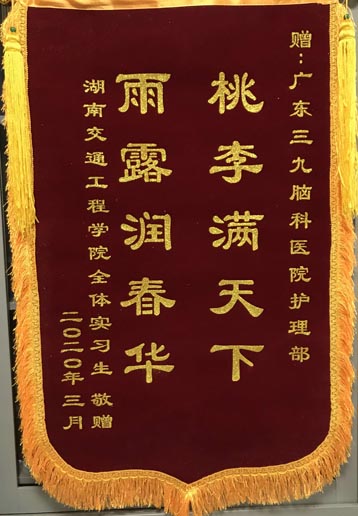 赠：广东三九脑科医院护理部
桃李满天下
雨露润春华
湖南交通工程学院全体实习生 敬赠
二〇二〇年三月